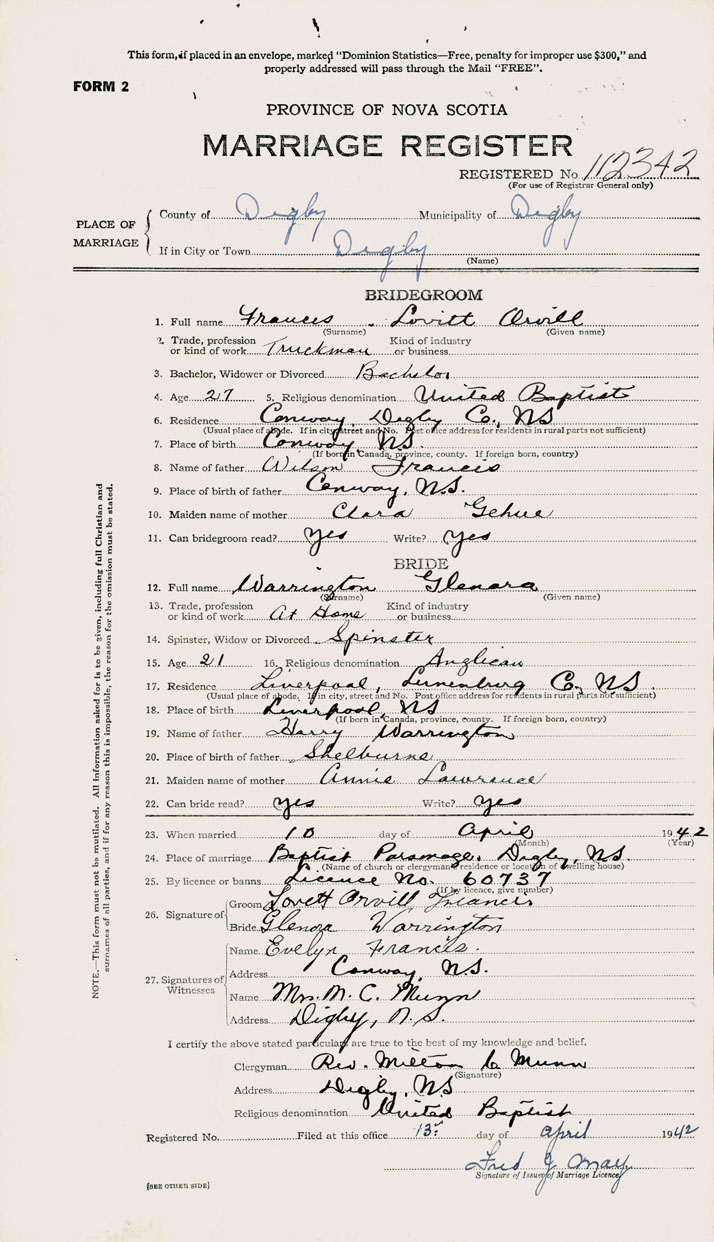 This form, if placed in an envelope, marked "Dominion Statistics—Free, penalty for improper use $300," and
properly addressed will pass through the Mail "FREE".
FORM 2
PROVINCE OF NOVA SCOTIA
MARRIAGE REGISTER
REGISTERED No. 112342
(For use of Registrar General only)
PLACE OF MARRIAGE
County of Digby Municipality of Digby
If in City or Town Digby
(Name)
BRIDEGROOM
1. Full name Frances Lovitt Orvill
(Surname) (Given name)
2. Trade, profession or kind of work Truckman Kind of industry or business
3. Bachelor, Widower or Divorced Bachelor
4. Age 27 5. Religious denomination United Baptist
6. Residence Conway, Digby Co., NS
(Usual place of abode. If in city street and No. Post office address for residents in rural parts not sufficient)
7. Place of birth Conway NS.
(If born in Canada, province, county. If foreign born, country)
8. Name of father Wilson Francis
9. Place of birth of father Conway, N.S.
10. Maiden name of mother Clara Gehue
11. Can bridegroom read? Yes Write? Yes
BRIDE
12. Full name Warrington Glenora
(Surname) (Given name)
13. Trade, profession or kind of work At Home Kind of industry or business
14. Spinster, Widow or Divorced Spinster
15. Age 21 16. Religious denomination Anglican
17. Residence Liverpool, Lunenburg Co, NS.
(Usual place of abode. If in city, street and No. Post office address for residents in rural parts not sufficient)
18. Place of birth Liverpool, NS
(If born in Canada, province, county. If foreign born, country)
19. Name of father Harry Warrington
20. Place of birth of father Shelburne
21. Maiden name of mother Annie Lawrence
22. Can bride read? yes Write? yes
23. When married 10 day of April 1942
(Month) (Year)
24. Place of marriage Baptist Parsonage, Digby, NS.
(Name of church or clergyman's residence or location of dwelling house)
25. By licence or banns Licence No. 60737
(If by licence, give number)
26. Signature of
Groom Lovett Orvill Francis
Bride Glenora Warrington
27. Signatures of Witnesses
Name Evelyn Francis.
Address Conway, N.S.
Name Mrs. M. C. Munn
Address Digby, N.S.
I certify the above stated particulars are true to the best of my knowledge and belief.
Clergyman Rev. Milton C Munn
(Signature)
Address Digby, NS
Religious denomination United Baptist
Registered No. Filed at this office 13 day of April 1942
Fred J May
Signature of Issuer of Marriage Licence
[SEE OTHER SIDE]
NOTE.—This form must not be mutilated. All information asked for is to be given, including full Christian and
surnames of all parties, and if for any reason this is impossible, the reason for the omission must be stated.